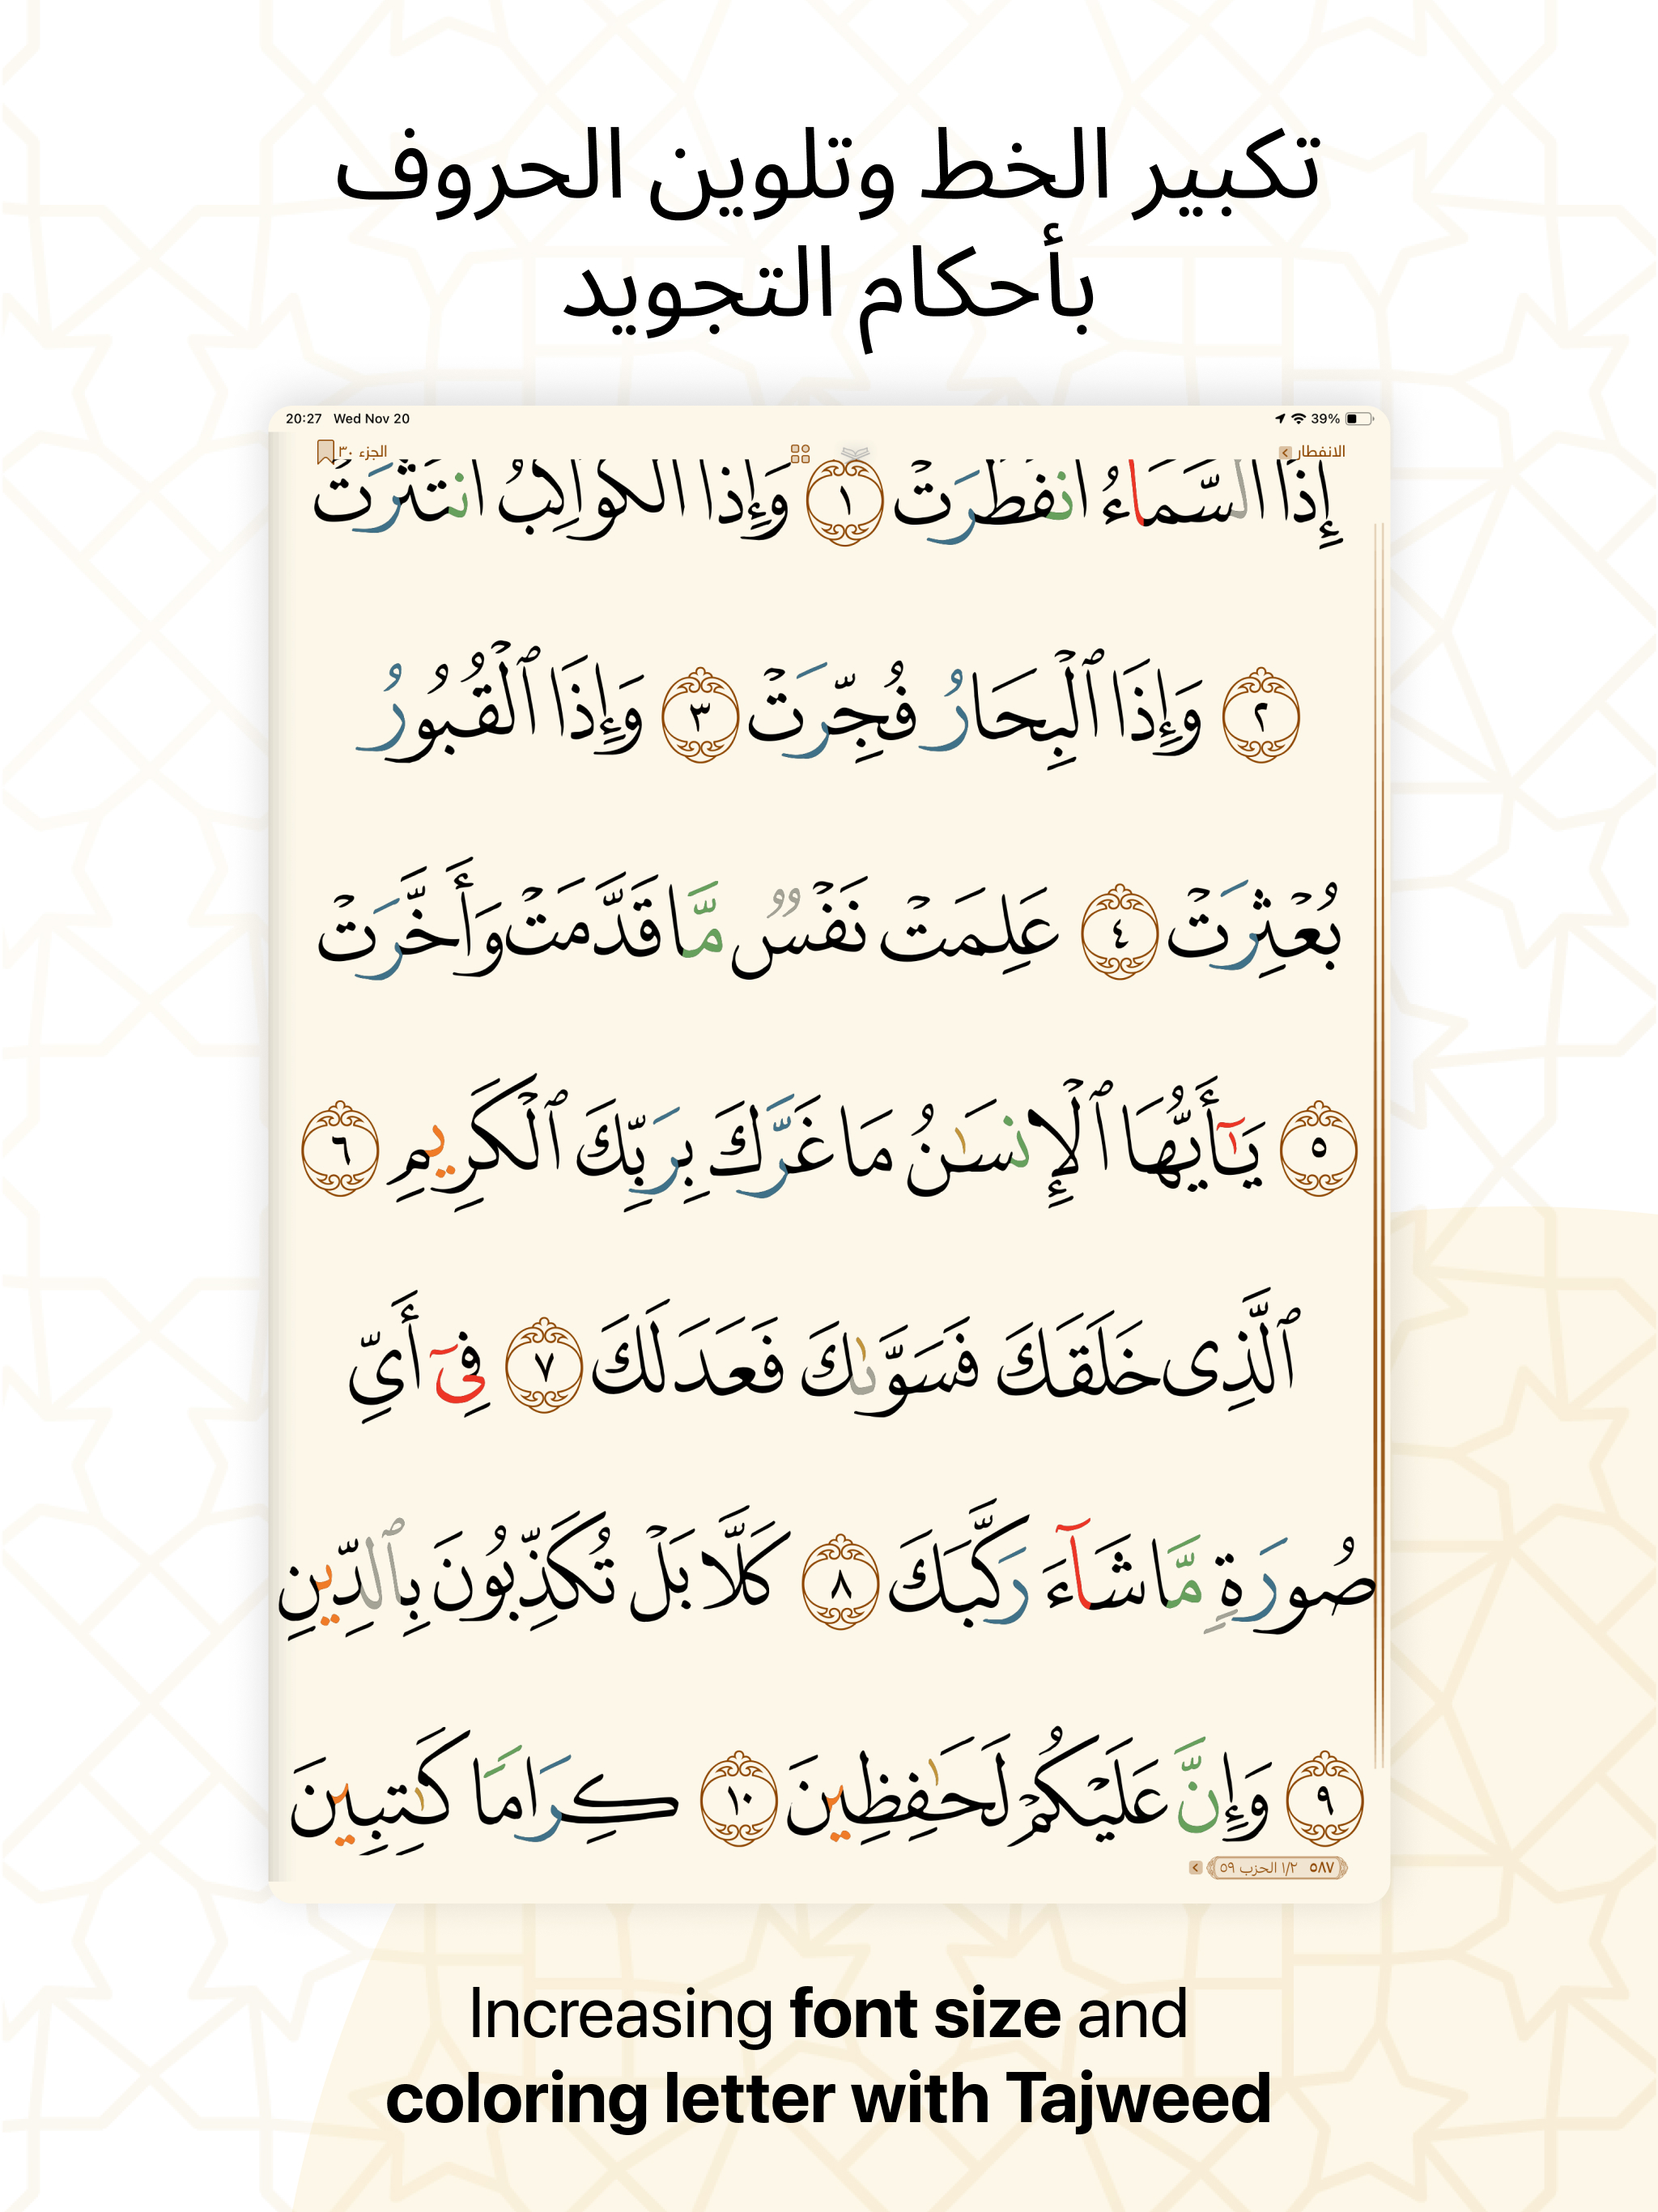 تكبير الخط وتلوين الحروف
بأحكام التجويد
20:27 Wed Nov 20
39%
الانفطار
الجزء ٣٠
إِذَا السَّمَاءُ انفَطَرَتْ ١ وَإِذَا الْكَوَاكِبُ انتَثَرَتْ
٢ وَإِذَا ٱلْبِحَارُ فُجِّرَتْ ٣ وَإِذَا ٱلْقُبُورُ
بُعْثِرَتْ ٤ عَلِمَتْ نَفْسٌ مَّا قَدَّمَتْ وَأَخَّرَتْ
٥ يَـٰٓأَيُّهَا ٱلْإِنسَـٰنُ مَا غَرَّكَ بِرَبِّكَ ٱلْكَرِيمِ ٦
ٱلَّذِى خَلَقَكَ فَسَوَّىٰكَ فَعَدَلَكَ ٧ فِىٓ أَىِّ
صُورَةٍ مَّا شَآءَ رَكَّبَكَ ٨ كَلَّا بَلْ تُكَذِّبُونَ بِٱلدِّينِ
٩ وَإِنَّ عَلَيْكُمْ لَحَـٰفِظِينَ ١٠ كِرَامًا كَـٰتِبِينَ
٥٨٧ ١/٢ الحزب ٥٩
Increasing font size and
coloring letter with Tajweed